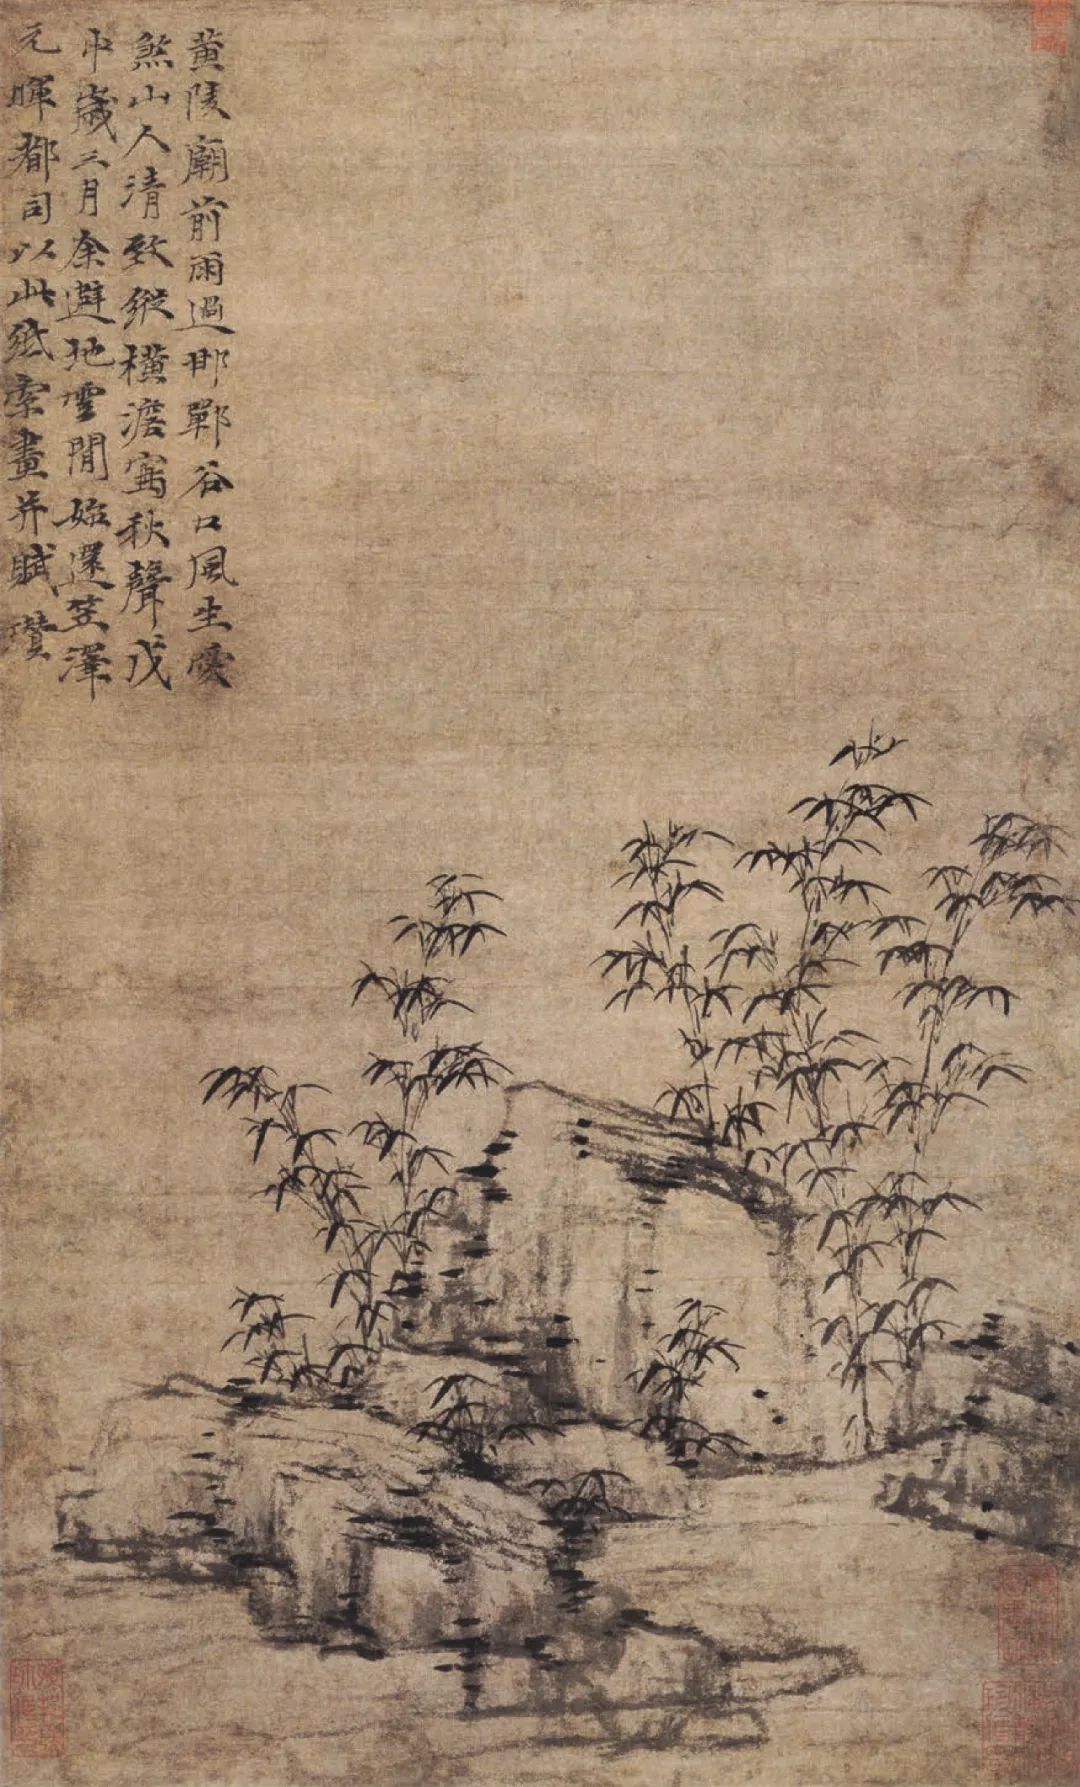 黄陵廟前雨過邯鄲谷口風生愛
煞山人清致縱橫澹寫秋聲戊
申歲三月余避地雲間始還笠澤
元暉都司以此紙索畫并賦瓚